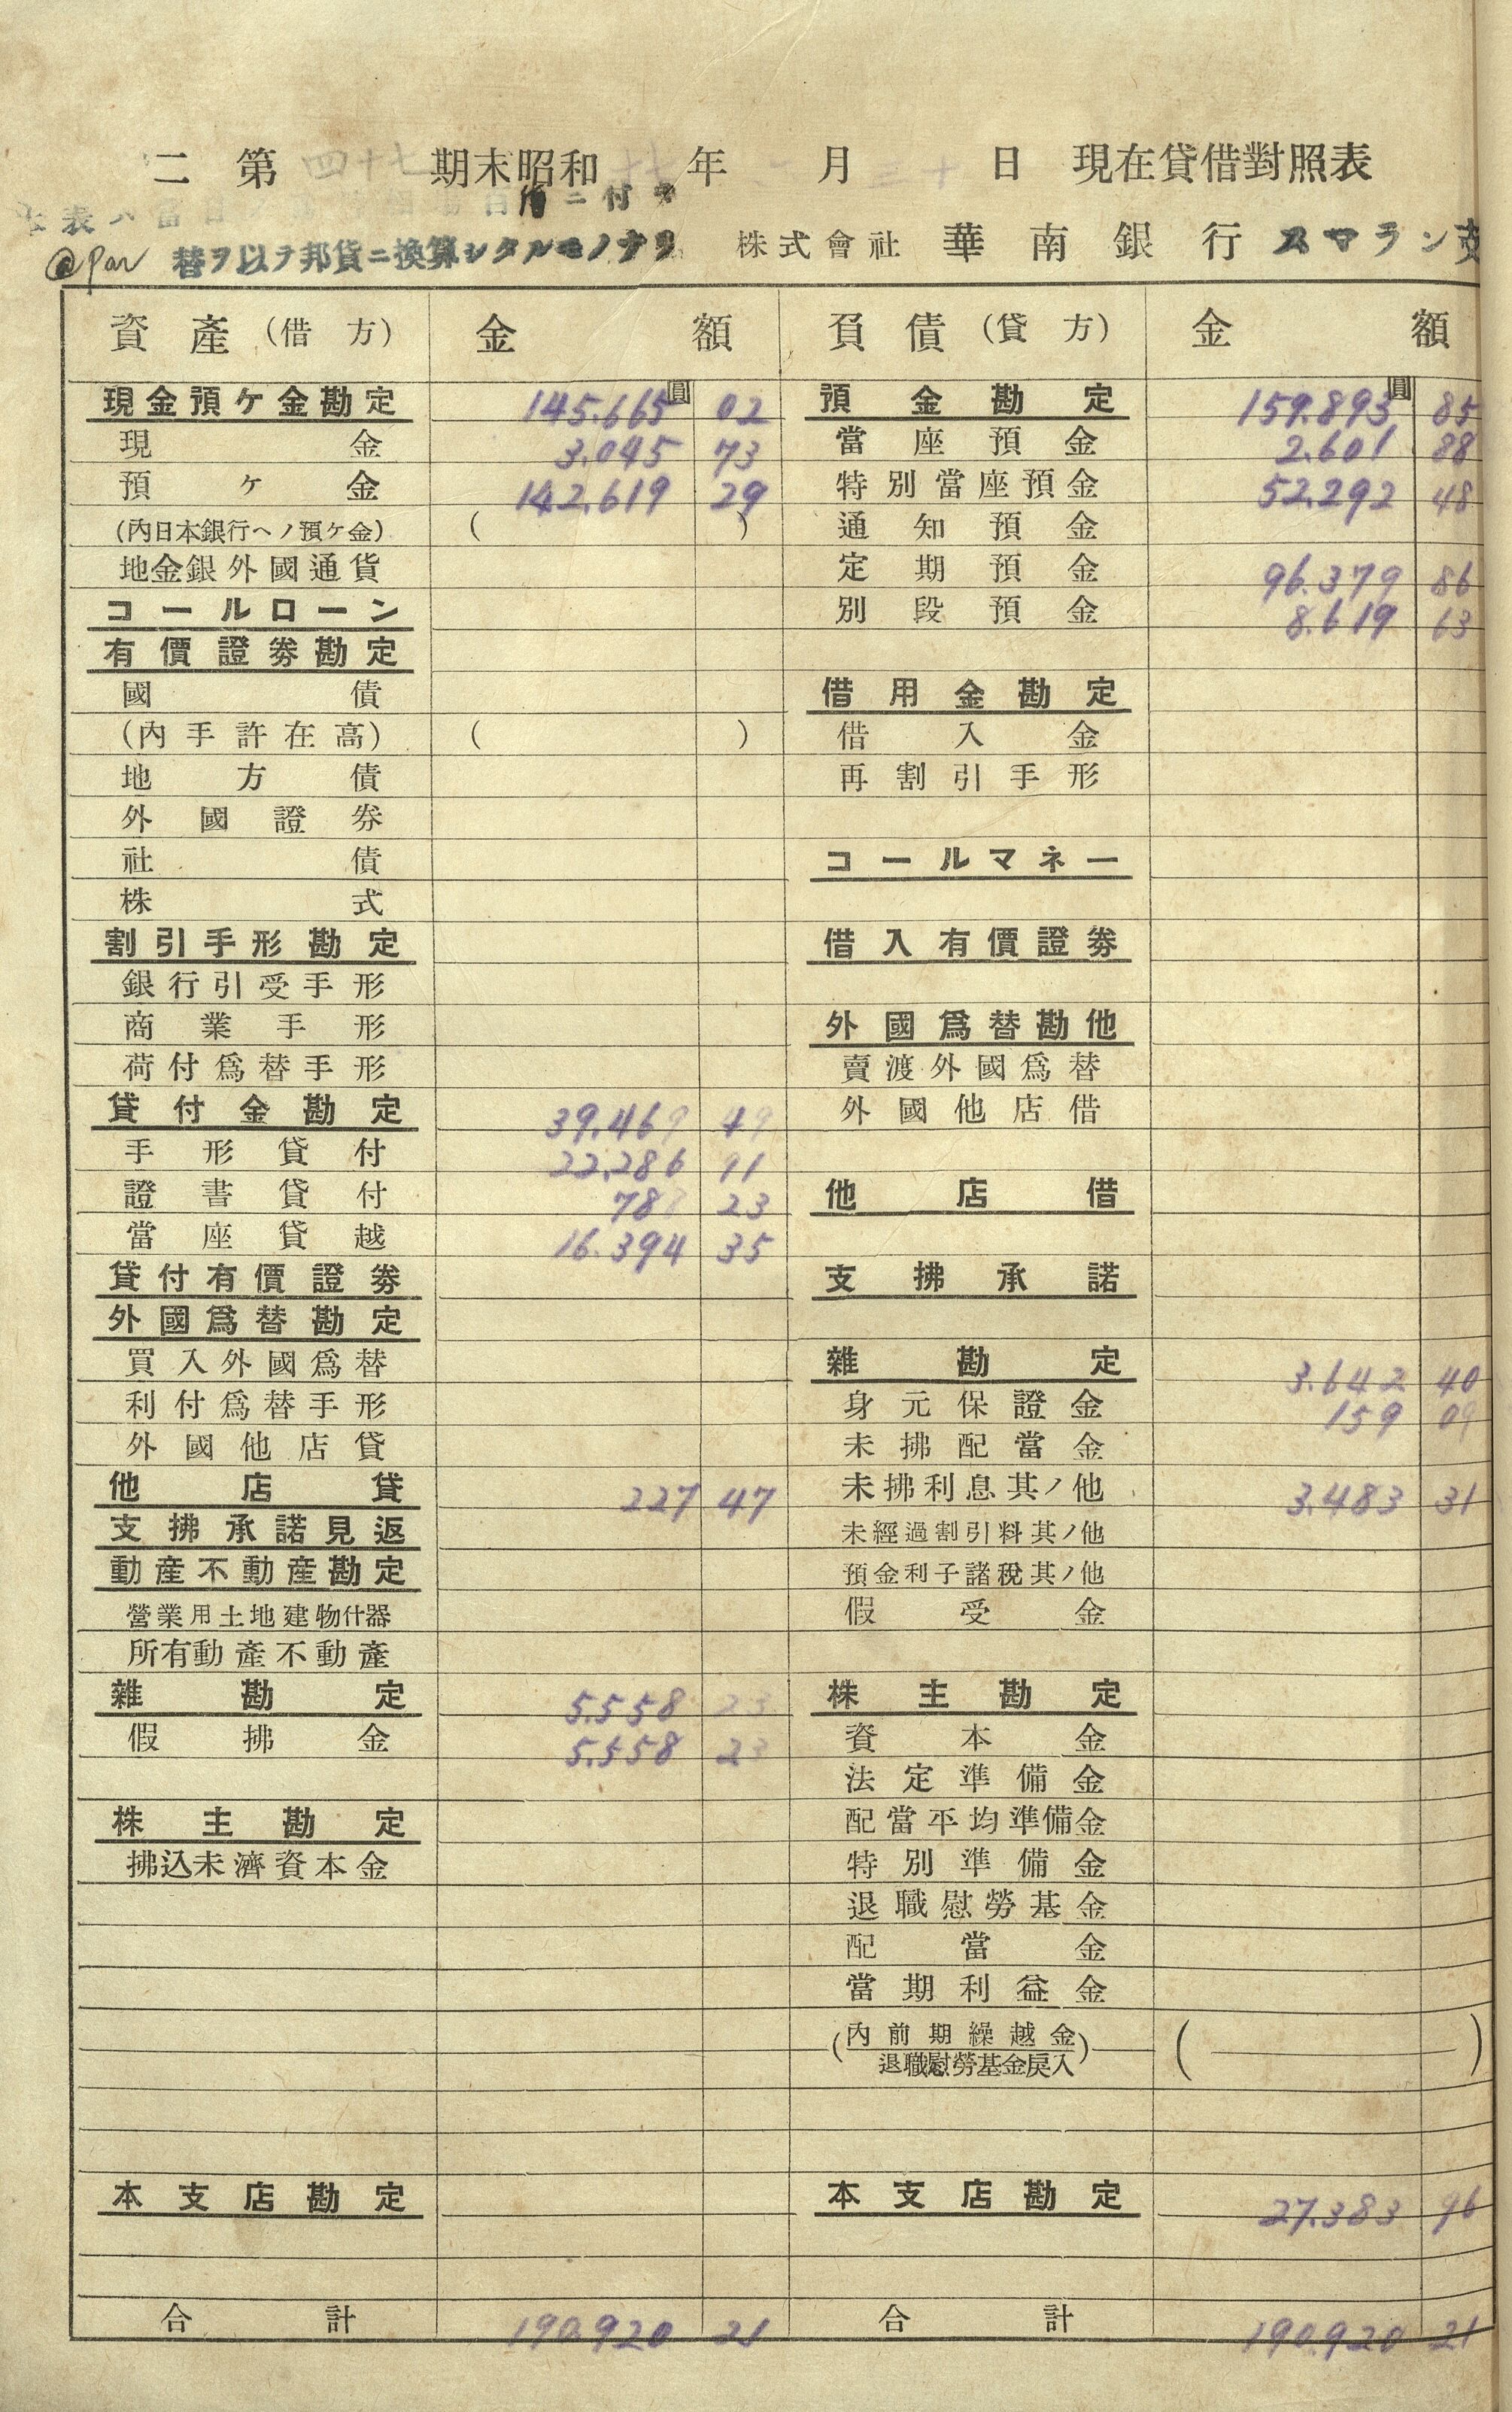 二 第 四十七 期末昭和 十七 年 六 月 三十 日 現在貸借對照表
日 ニ付
@Par 替ヲ以テ邦貨ニ換算シタルモノナリ 株式會社 華南銀行 スマラン支
資產(借方) 金額 負債(貸方) 金額
現金預ケ金勘定 145.665圓 02 預金勘定 159.893圓 85
現金 3.045 73 當座預金 2.601 88
預ケ金 142.619 29 特別當座預金 52.292 48
(內日本銀行ヘノ預ケ金) ( ) 通知預金
地金銀外國通貨 定期預金 96.379 86
コールローン 別段預金 8.619 63
有價證劵勘定
國債 借用金勘定
(內手許在高) ( ) 借入金
地方債 再割引手形
外國證券
社債 コールマネー
株式
割引手形勘定 借入有價證劵
銀行引受手形
商業手形 外國爲替勘他
荷付爲替手形 賣渡外國爲替
貸付金勘定 39.469 49 外國他店借
手形貸付 22.286 91
證書貸付 788 23 他店借
當座貸越 16.394 35
貸付有價證劵 支拂承諾
外國爲替勘定
買入外國爲替 雜勘定 3.642 40
利付爲替手形 身元保證金 159 09
外國他店貸 未拂配當金
他店貸 227 47 未拂利息其ノ他 3.483 31
支拂承諾見返 未經過割引料其ノ他
動產不動產勘定 預金利子諸稅其ノ他
營業用土地建物什器 假受金
所有動產不動產
雜勘定 5.558 23 株主勘定
假拂金 5.558 23 資本金
法定準備金
株主勘定 配當平均準備金
拂込未濟資本金 特別準備金
退職慰勞基金
配當金
當期利益金
(內前期繰越金 ( )
退職慰勞基金戾入)
本支店勘定 本支店勘定 27.383 96
合計 190.920 21 合計 190.920 21